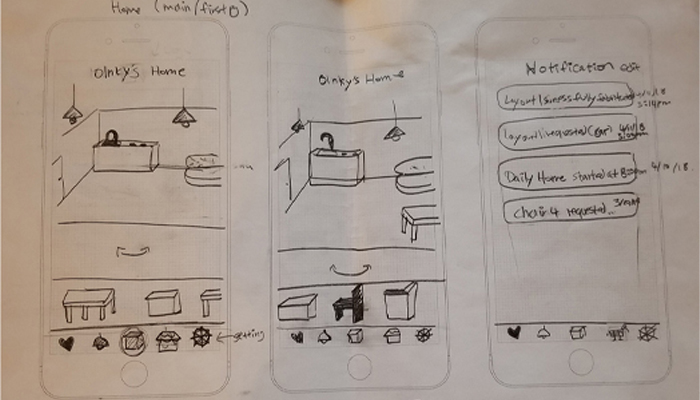 Home (main/first)
Oinky's Home
← setting
Oinky's Home
Notification edit
Layout successfully
4/10/18
5:14pm
Layout requested
Daily Home started at 8:00pm 4/10/18
Chair 4 requested..